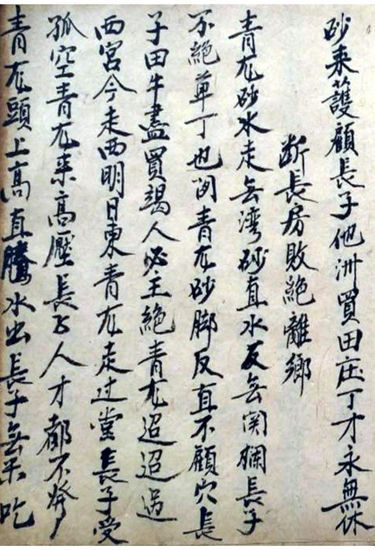 砂来護顧長子他洲買田庄丁才永無休
断長房敗絶離鄉
青尨砂水走無湾砂直水反無関欄長子
不絶單丁也青尨砂脚反直不顧穴長
子田牛盡買竭人必主絶青尨迢迢過
西宮今走西明日東青尨走过堂長子受
孤空青尨来高壓長子人才都不發
青尨頭上高直騰水出長子無米吃